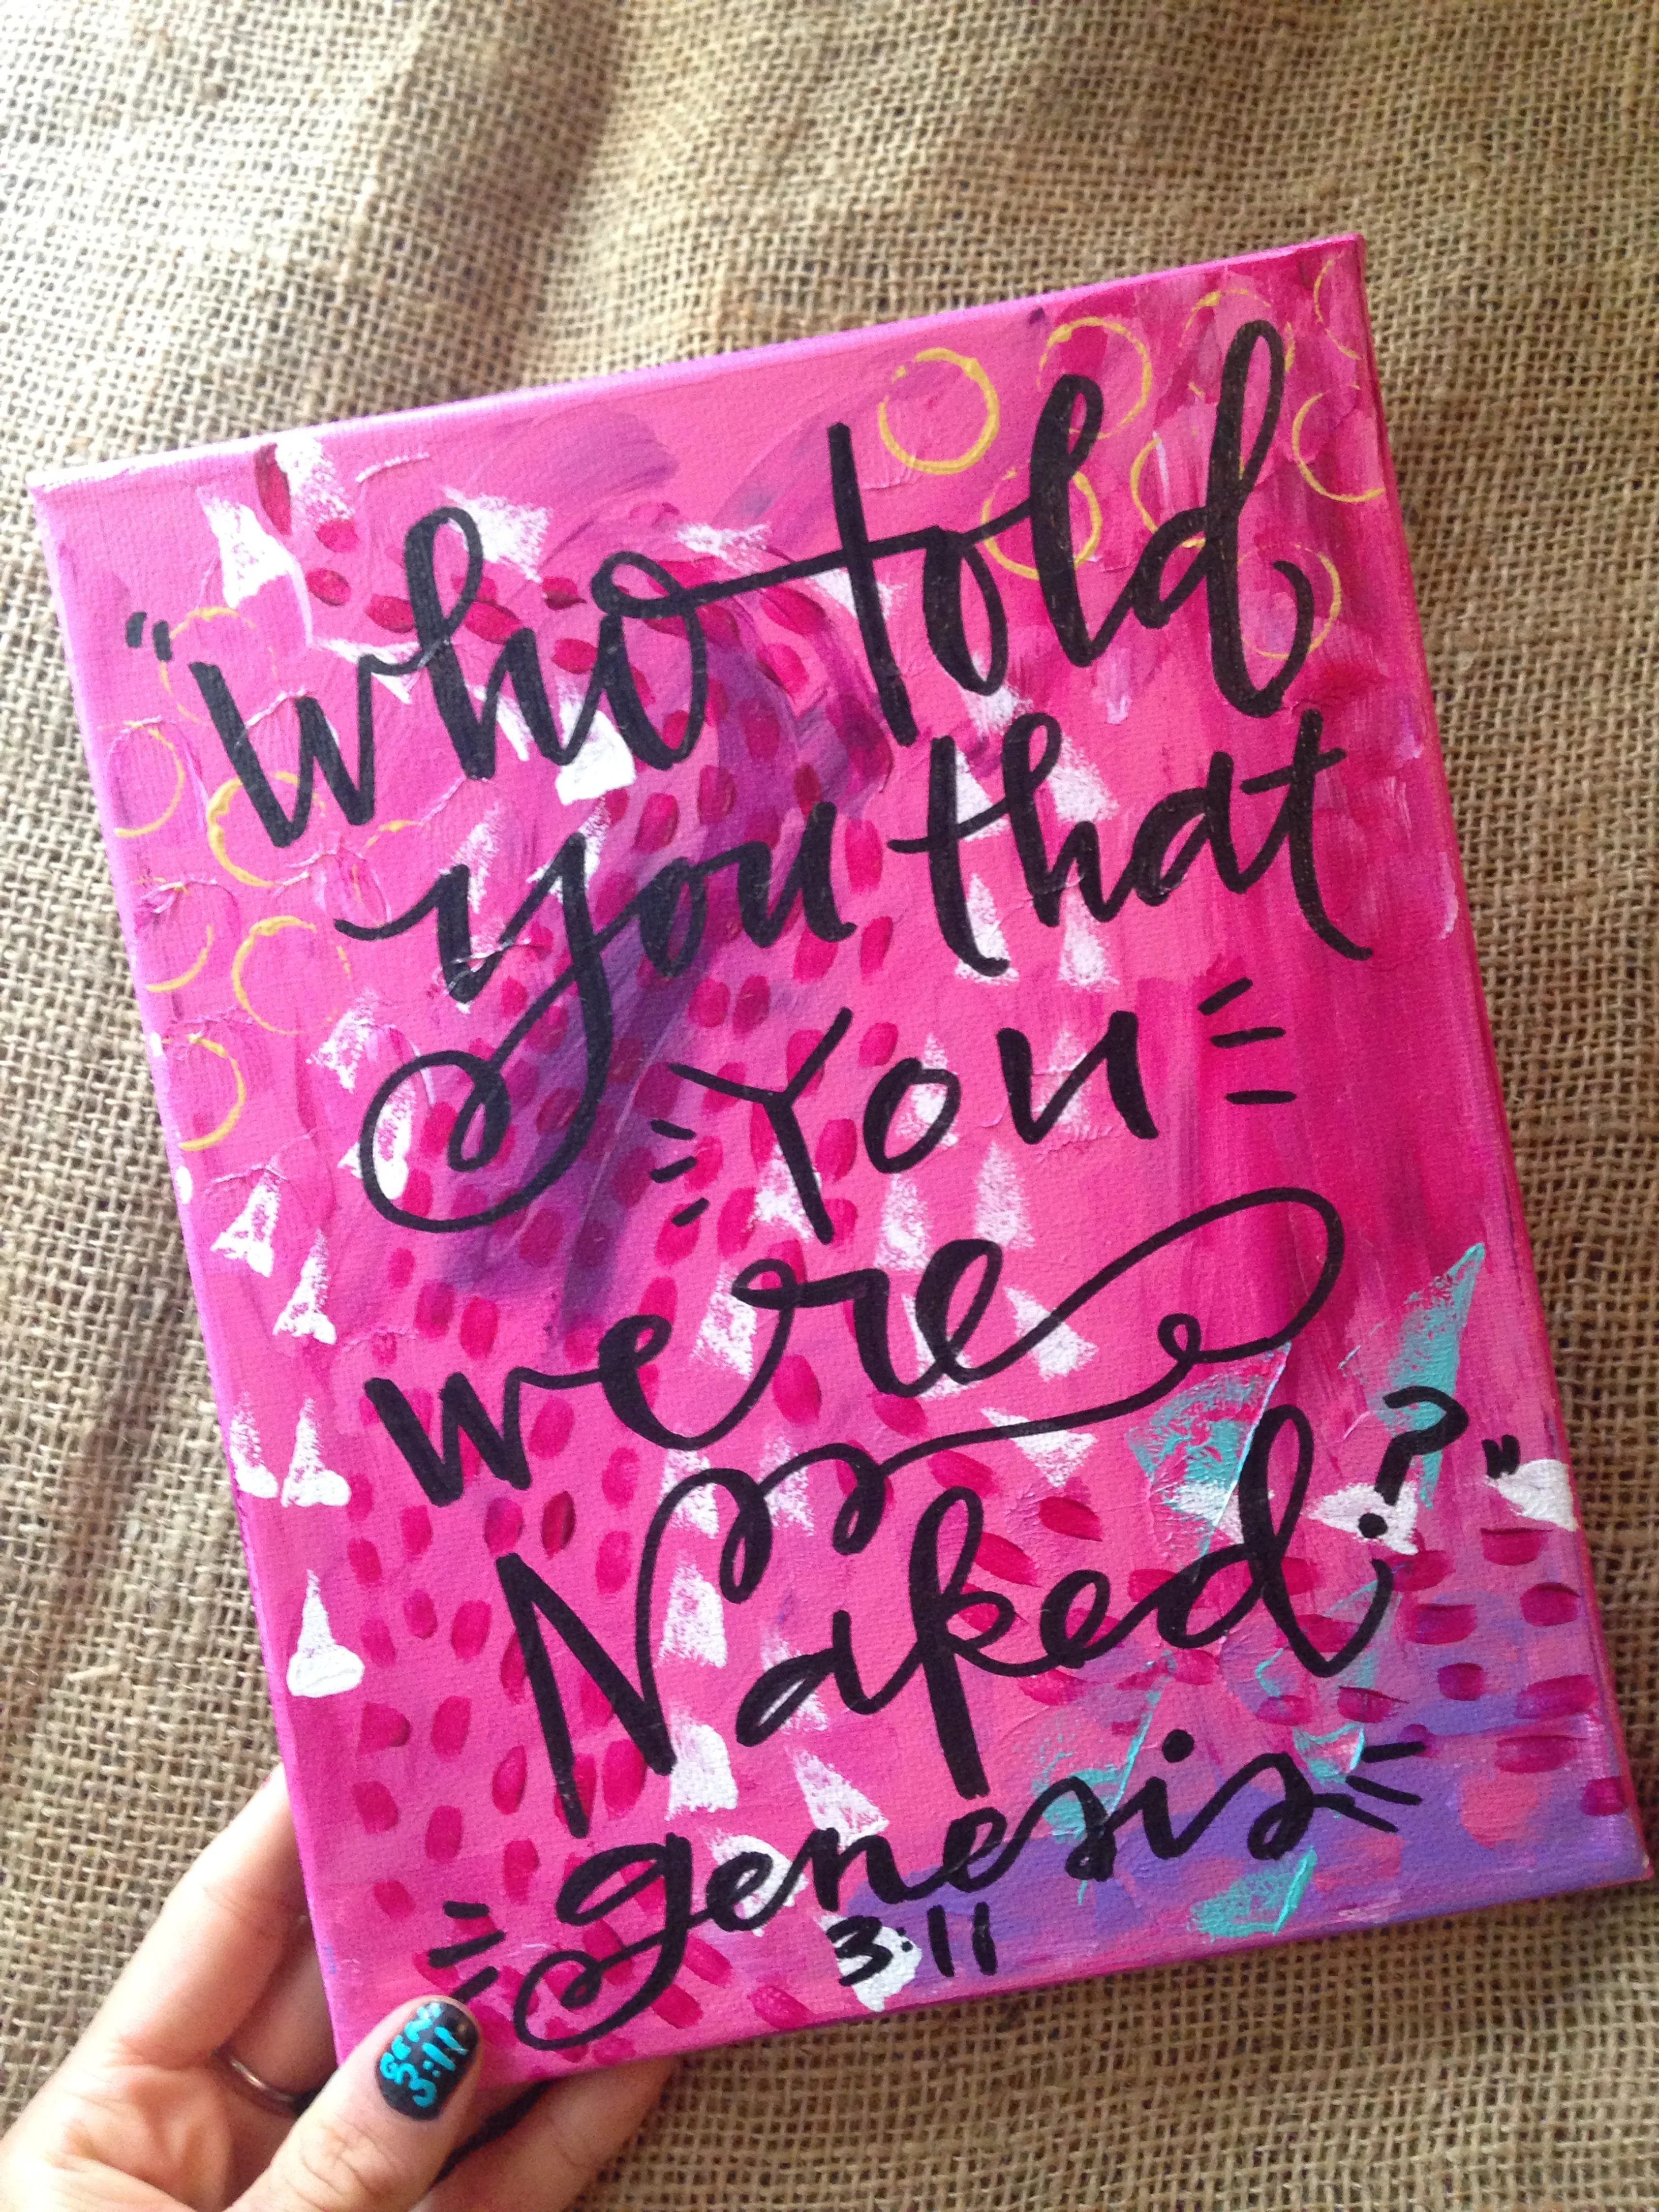 "who told
you that
You
were
Naked?"
genesis
3:11
GEN
3:11